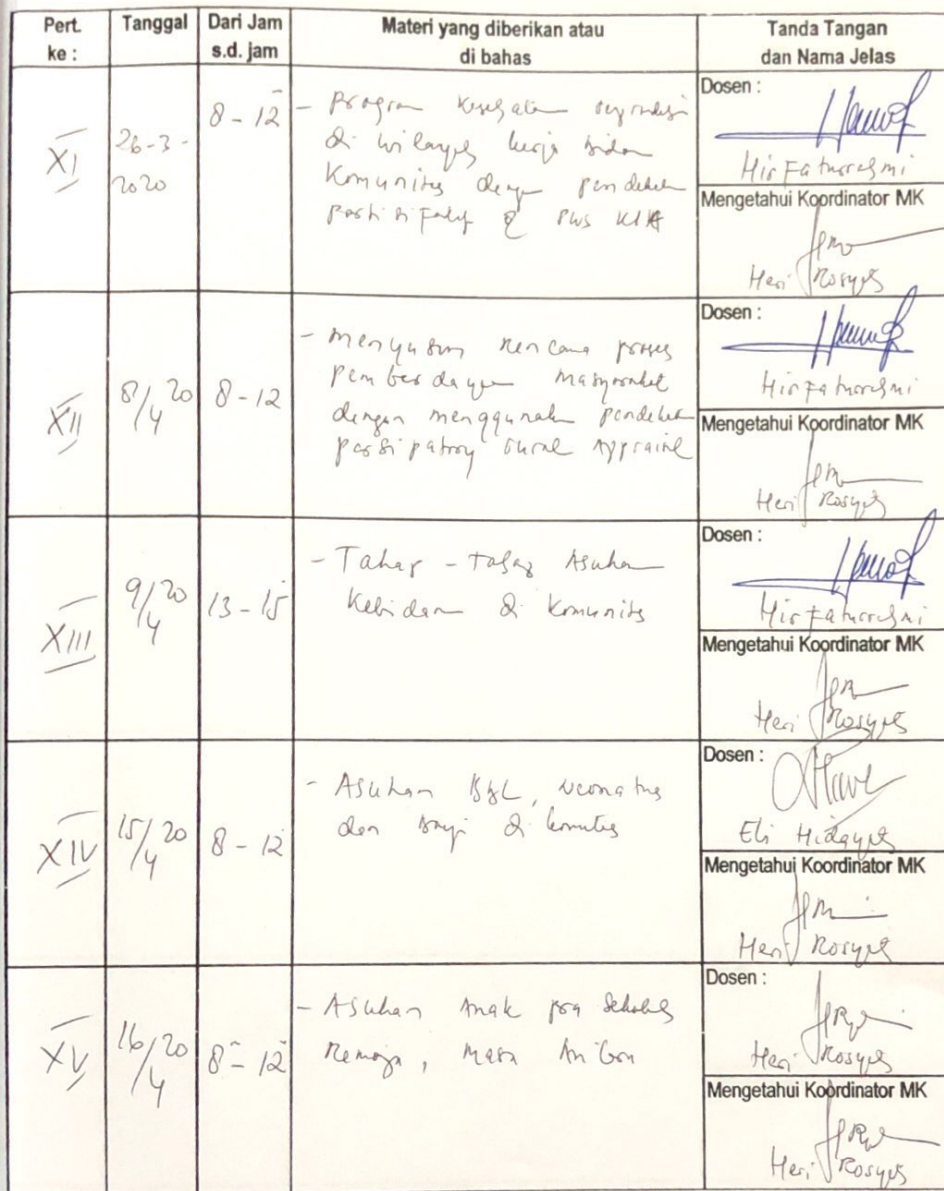 Pert. ke : Tanggal Dari Jam s.d. jam Materi yang diberikan atau di bahas Tanda Tangan dan Nama Jelas
XI 26-3-2020 8 - 12
- Program
di wilayah kerja bidan
Komunitas dengan
PWS KIA
Dosen :
Hirfaturrahmi
Mengetahui Koordinator MK
Heri Rosyati
XII 8/4 20 8 - 12
- Menyusun rencana proses
pemberdayaan masyarakat
dengan menggunakan
Dosen :
Hirfaturrahmi
Mengetahui Koordinator MK
Heri Rosyati
XIII 9/4 20 13 - 15
- Tahap - tahap Asuhan
Kebidanan di Komunitas
Dosen :
Hirfaturrahmi
Mengetahui Koordinator MK
Heri Rosyati
XIV 15/4 20 8 - 12
- Asuhan BBL, Neonatus
dan bayi di
Dosen :
Eli Hidayati
Mengetahui Koordinator MK
Heri Rosyati
XV 16/4 20 8 - 12
- Asuhan Anak pra sekolah
Remaja, Masa
Dosen :
Heri Rosyati
Mengetahui Koordinator MK
Heri Rosyati